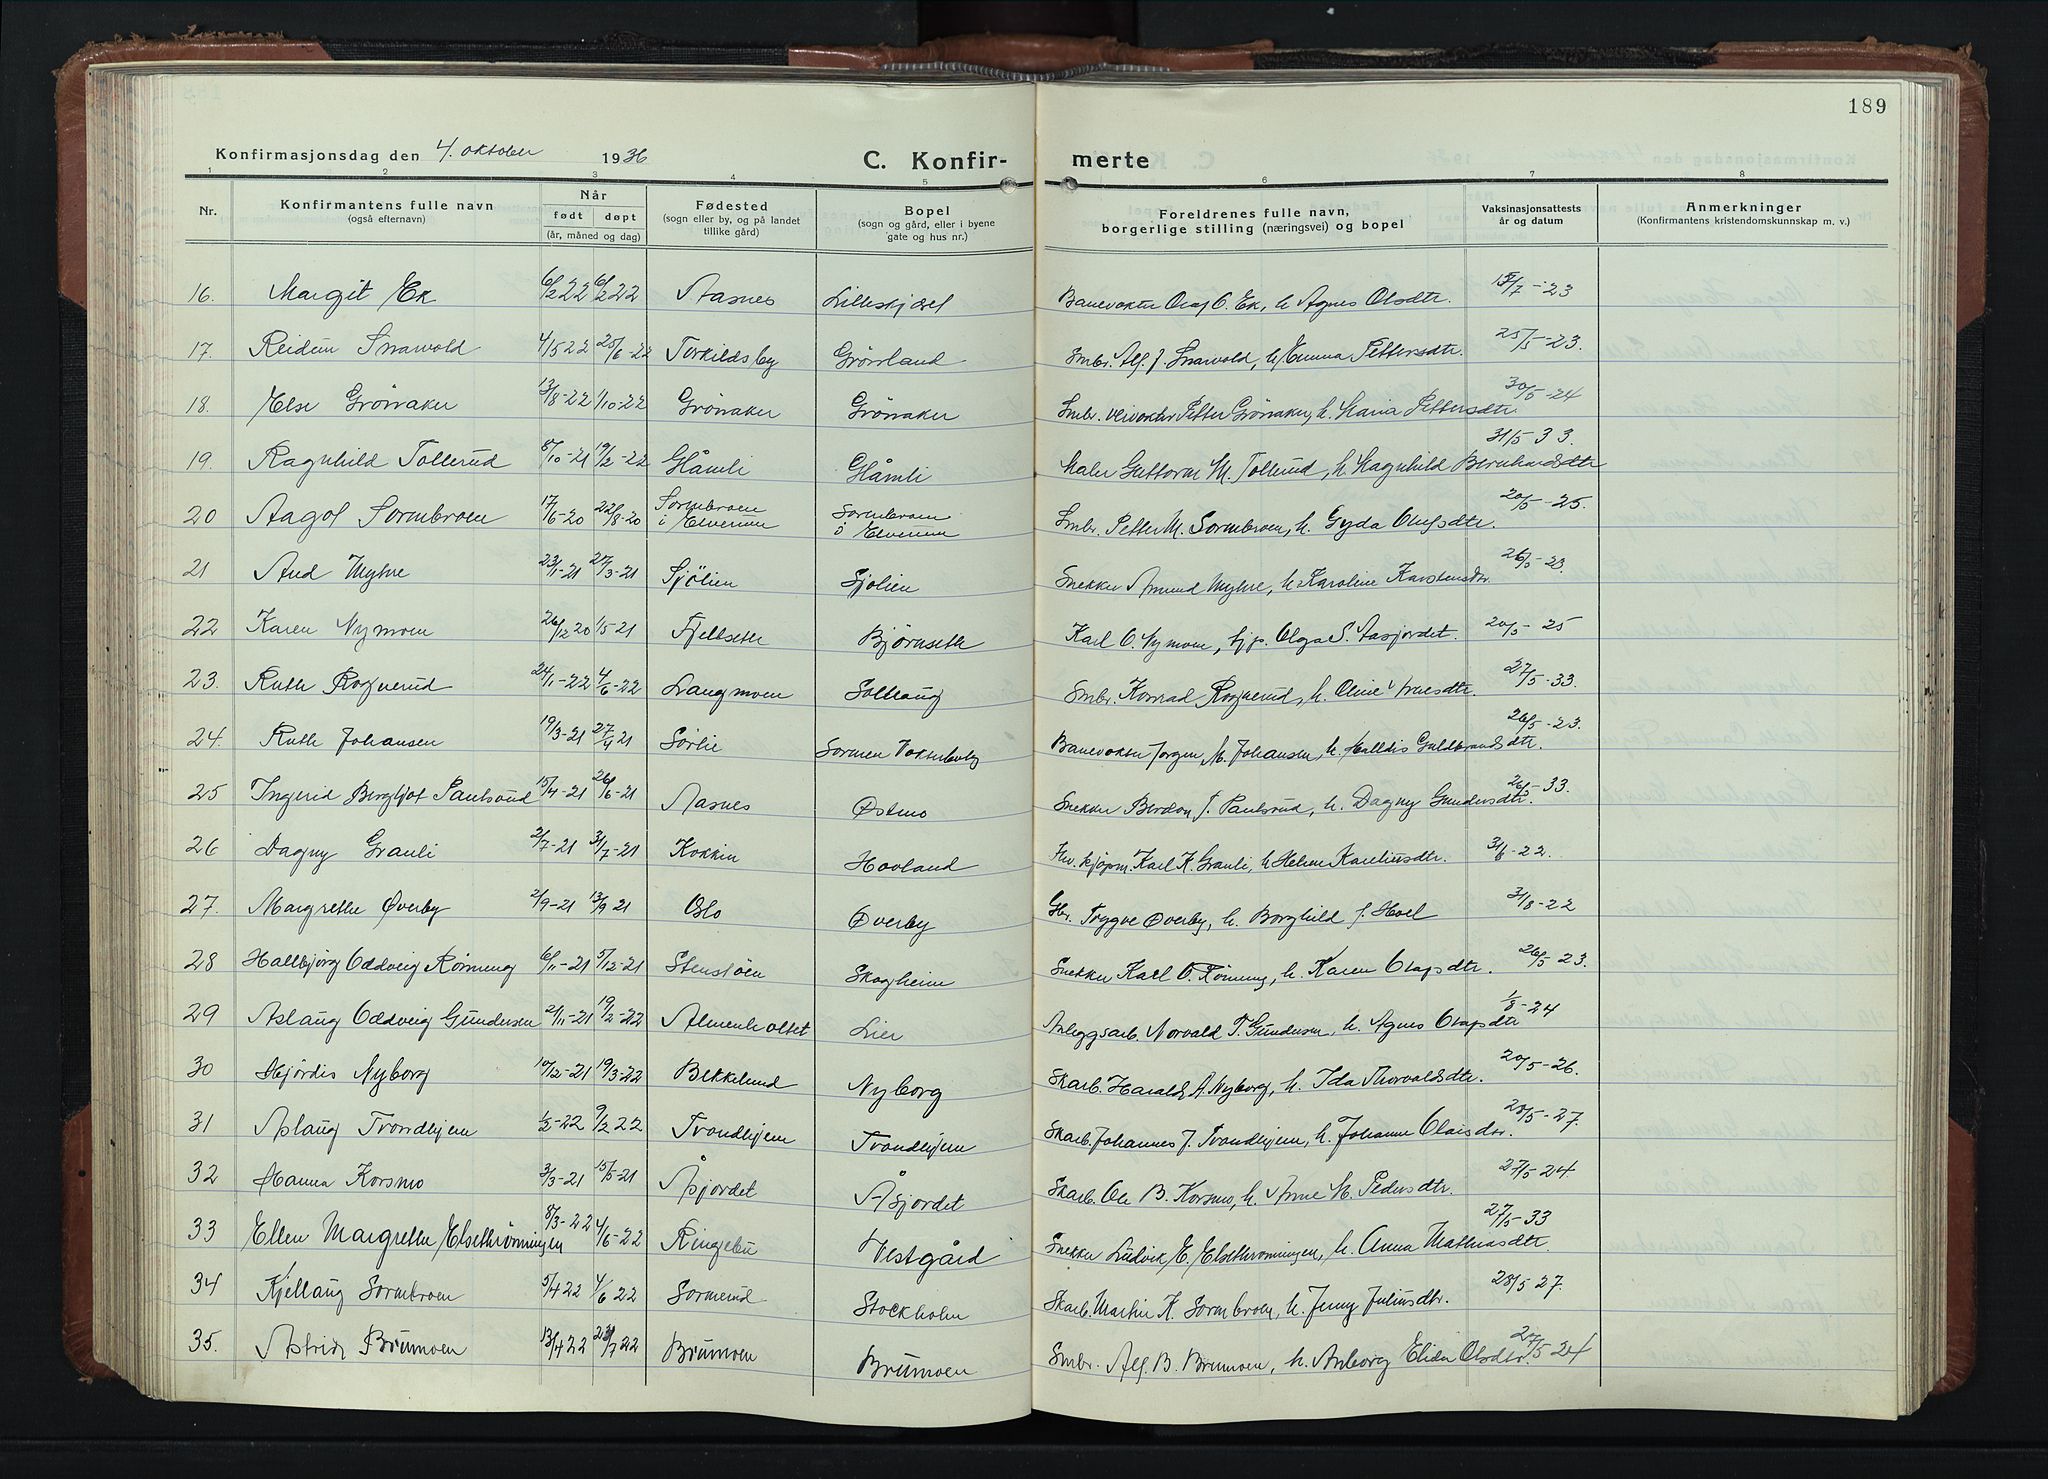 189
Konfirmasjonsdag den 4. oktober 1936
C. Konfir- merte
1 2 3 4 5 6 7 8
Nr.
Konfirmantens fulle navn
(også efternavn)
Når
født døpt
(år, måned og dag)
Fødested
(sogn eller by, og på landet
tillike gård)
Bopel
(sogn og gård, eller i byene
gate og hus nr.)
Foreldrenes fulle navn,
borgerlige stilling (næringsvei) og bopel
Vaksinasjonsattests
år og datum
Anmerkninger
(Konfirmantens kristendomskunnskap m. v.)
16. Margit Ek 6/2 22 6/2 22 Aasnes Lilleskjæl Banevokter Olaf O. Ek, h. Agnes Olsdtr. 15/7-23
17. Reidun Snarvold 4/5 22 25/6-22 Torkildsby Grönland Smbr. Alf J. Snarvold, h. Emma Pettersdtr. 25/5-23.
18. Else Grönaker 13/8-22 1/10-22 Grönaker Grönaker Smbr. veivokter Petter Grönaker, h. Maria Pettersdtr. 30/5-24
19. Ragnhild Tollerud 8/10-21 19/2-22 Glåmli Glåmli Maler Guttorm M. Tollerud, h. Magnhild Bernhardsdtr 31/5 33.
20 Aagot Sormbroen 17/6-20 22/8-20 Sormbroen i Elverum Sormbroen i Elverum Smbr. Petter M. Sormbroen, h. Gyda Olufsdtr. 20/5-25.
21 Aud Myhre 23/1-21 27/3-21 Sjölien Sjölien Snekker Amund Myhre, h. Karoline Karstensdtr. 26/5-23.
22 Karen Nymoen 26/12 20 1/5-21 Fjellseth Bjørnseth Karl O. Nymoen, hjp. Olga S. Aasjordet. 20/5-25
23. Ruth Rognerud 24/1-22 4/6-22 Langmoen Solhaug Smbr. Konrad Rognerud, h. Oline Arnesdtr. 27/5-33.
24. Ruth Johansen 19/3-21 27/4 21 Sörlie Sormen Vokterbolig Banevokter Jørgen M. Johansen, h. Halldis Guldbrandsdtr. 26/5-23.
25 Ingerid Bergljot Paulsrud 15/4-21 26/6-21 Aasnes Østmo Snekker Berdon J. Paulsrud, h. Dagny Gundersdtr. 26/5-33.
26 Dagny Granli 2/7-21 31/7-21 Kokkin Hovland Fhv. kjøpm. Karl K. Granli, h. Helene Karliusdtr. 31/8-22.
27. Margrethe Øverby 2/9-21 13/9 21 Oslo Øverby Gbr. Trygve Øverby, h. Borghild f. Hoel 31/8-22
28 Hallbjörg Oddveig Rönning 6/11-21 5/12-21 Stenstöen Skogheim Snekker Karl O. Rönning, h. Karen Olafsdtr. 26/5-23.
29 Aslaug Oddveig Gundersen 2/11-21 19/2-22 Almenholtet Lier Anleggsarb. Norvald T. Gundersen, h. Agnes Olafsdtr 1/8-24
30 Hjördis Nyborg 10/12-21 19/3-22 Bekkelund Nyborg Skarb. Harald A. Nyborg, h. Ida Thorvaldsdtr. 20/5-26.
31 Aslaug Trondhjem 1/2-22 9/2 22 Trondhjem Trondhjem Skarb. Johannes J. Trondhjem, h. Johanne Olaisdtr. 28/5-27.
32 Hanna Korsmo 3/3-21 15/5-21 Åsjordet Åsjordet Skarb. Ole B. Korsmo, h. Anne M. Pedersdtr. 27/5-24.
33 Ellen Margrethe Elsethrønningen 8/3-22 4/6-22 Ringebu Vestgård Snekker Ludvik E. Elsethrønningen, h. Anna Mathiasdtr. 27/5-33
34 Kjellaug Sormbroen 5/4 22 4/6 22 Sormerud Stockholm Skarb. Martin K. Sormbroen, h. Jenny Juliusdtr. 28/5 27.
35. Astrid Brumoen 13/4 22 23/7 22 Brumoen Brumoen Smbr. Alf B. Brumoen, h. Anborg Elida Olsdtr. 27/5 24